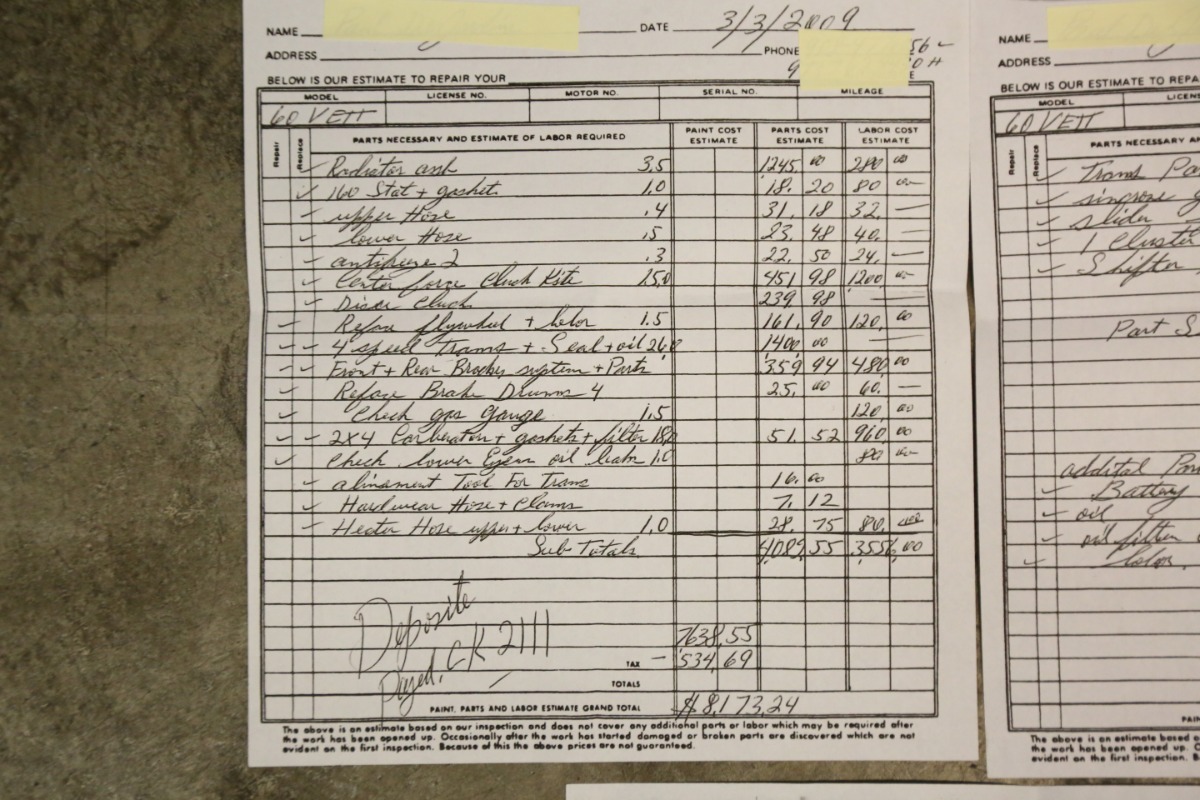 NAME DATE 3/3/2009
ADDRESS PHONE 56
BELOW IS OUR ESTIMATE TO REPAIR YOUR
MODEL LICENSE NO. MOTOR NO. SERIAL NO. MILEAGE
60 VETT
Repair Replace PARTS NECESSARY AND ESTIMATE OF LABOR REQUIRED PAINT COST ESTIMATE PARTS COST ESTIMATE LABOR COST ESTIMATE
Radiator 3.5 1245 00 280 00
160 Stat + gaskets 1.0 18. 20 80 00
upper Hose .4 31. 18 32. —
lower Hose .5 23. 48 40. —
2 .3 22. 50 24. —
Center force Cluch Kite 15.0 451 98 1200 00
Cluch 239 98 —
Reface flywheel + 1.5 161. 90 120. 00
4 speed Trans + Seal + oil 26.0 1400 00 —
Front + Rear Brakes system + Parts 359 94 480 00
Reface Brake Drums 4 25. 00 60. —
Check gas gauge 1.5 120 00
2X4 + gaskets + filter 18.0 51. 52 960. 00
Check lower oil 1.0 80 00
alinament Tool For Trans 16. 00
Hardwear Hose + Clams 7. 12
Heater Hose upper + lower 1.0 28. 75 80. 00
Sub Totals 4082 55 3556.00
Deposite
CK 2111
7638.55
TAX — 534.69
TOTALS
PAINT, PARTS AND LABOR ESTIMATE GRAND TOTAL $8,173.24
The above is an estimate based on our inspection and does not cover any additional parts or labor which may be required after
the work has been opened up. Occasionally after the work has started damaged or broken parts are discovered which are not
evident on the first inspection. Because of this the above prices are not guaranteed.
NAME
ADDRESS
BELOW IS OUR ESTIMATE TO REPA
MODEL LICENS
60 VETT
Repair Replace PARTS NECESSARY AN
Trans Pa
slider
1 Cluster
Shifter
Part S
addital
Battery
oil
oil filter
PAIN
The above is an estimate based o
the work has been opened up. O
evident on the first inspection. B